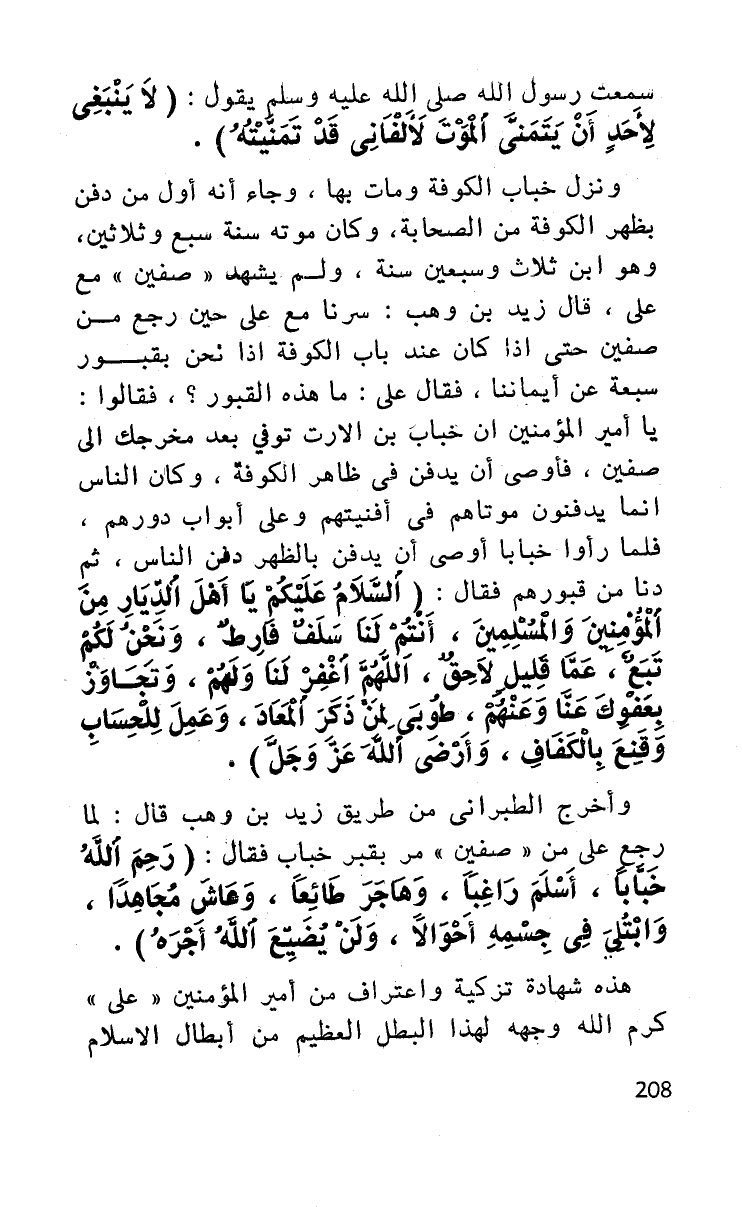 سمعت رسول الله صلى الله عليه وسلم يقول : ( لَا يَنْبَغِى
لِأَحَدٍ أَنْ يَتَمَنىَّ ٱلْمَوْتَ لَأَلْفَانِى قَدْ تَمَنَّيْتهُ ) .
ونزل خباب الكوفة ومات بها ، وجاء أنه أول من دفن
بظهر الكوفة من الصحابة، وكان موته سنة سبع وثلاثين،
وهو ابن ثلاث وسبعين سنة ، ولم يشهد « صفين » مع
على ، قال زيد بن وهب : سرنا مع على حين رجع من
صفين حتى اذا كان عند باب الكوفة اذا نحن بقبور
سبعة عن أيماننا ، فقال على : ما هذه القبور ؟ ، فقالوا :
يا أمير المؤمنين ان خباب بن الارت توفي بعد مخرجك الى
صفين ، فأوصى أن يدفن فى ظاهر الكوفة ، وكان الناس
انما يدفنون موتاهم فى أفنيتهم وعلى أبواب دورهم ،
فلما رأوا خبابا أوصى أن يدفن بالظهر دفن الناس ، ثم
دنا من قبورهم فقال : ( ٱلسَّلَامُ عَلَيْكُمْ يَا أَهْلَ ٱلدِّيَارِ مِنَ
ٱلْمُؤْمِنِينَ وَالْمُسْلِمِينَ ، أَنْتُمْ لَنَا سَلَفٌ فَارِطٌ ، وَنَحْنُ لَكُمْ
تَبَعٌ ، عَمَّا قَلِيلٍ لَاحِقٌ ، ٱللَّهُمَّ ٱغْفِرْ لَنَا وَلَهُمْ ، وَتَجَاوَزْ
بِعَفْوِكَ عَنَّا وَعَنْهُمْ ، طُوبَى لِمَنْ ذَكَرَ ٱلْمَعَادَ ، وَعَمِلَ لِلْحِسَابِ
وَقَنِعَ بِالْكَفَافِ ، وَأَرْضَى ٱللَّهَ عَزَّ وَجَلَّ ) .
وأخرج الطبرانى من طريق زيد بن وهب قال : لما
رجع على من « صفين » مر بقبر خباب فقال : ( رَحِمَ ٱللَّهُ
خَبَّاباً ، أَسْلَمَ رَاغِباً ، وَهَاجَرَ طَائِعاً ، وَعَاشَ مُجَاهِدًا ،
وَابْتُلِىَ فِى جِسْمِهِ أَحْوَالًا ، وَلَنْ يُضَيِّعَ ٱللَّهُ أَجْرَهُ ) .
هذه شهادة تزكية واعتراف من أمير المؤمنين « على »
كرم الله وجهه لهذا البطل العظيم من أبطال الاسلام
208